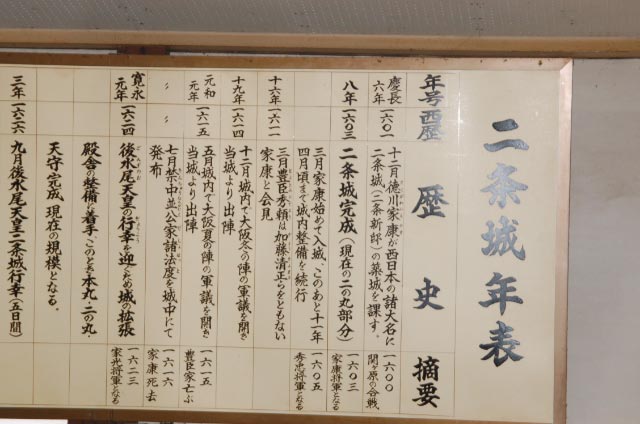 二条城年表
年号
西暦
歴史
摘要
慶長
六年
一六〇一
十二月徳川家康が西日本の諸大名に
二条城(二条新邸)の築城を課す。
一六〇〇
関ヶ原の合戦
八年
一六〇三
二条城完成(現在の二の丸部分)
一六〇三
家康将軍となる
三月家康始めて入城、このあと十一年
四月頃まで城内整備を続行
一六〇五
秀忠将軍となる
十六年
一六一一
三月豊臣秀頼は加藤清正らをともない
家康と会見
十九年
一六一四
十二月城内で大阪冬の陣の軍議を開き
当城より出陣
元和
元年
一六一五
五月城内で大阪夏の陣の軍議を開き
当城より出陣
一六一五
豊臣家亡ぶ
〃
〃
七月禁中並公家諸法度を城中にて
発布
一六一六
家康死去
寛永
元年
一六二四
後水尾天皇の行幸を迎えるため城の拡張
一六二三
家光将軍となる
殿舎の整備に着手、このとき本丸・二の丸・
天守完成、現在の規模となる。
三年
一六二六
九月後水尾天皇二条城行幸(五日間)